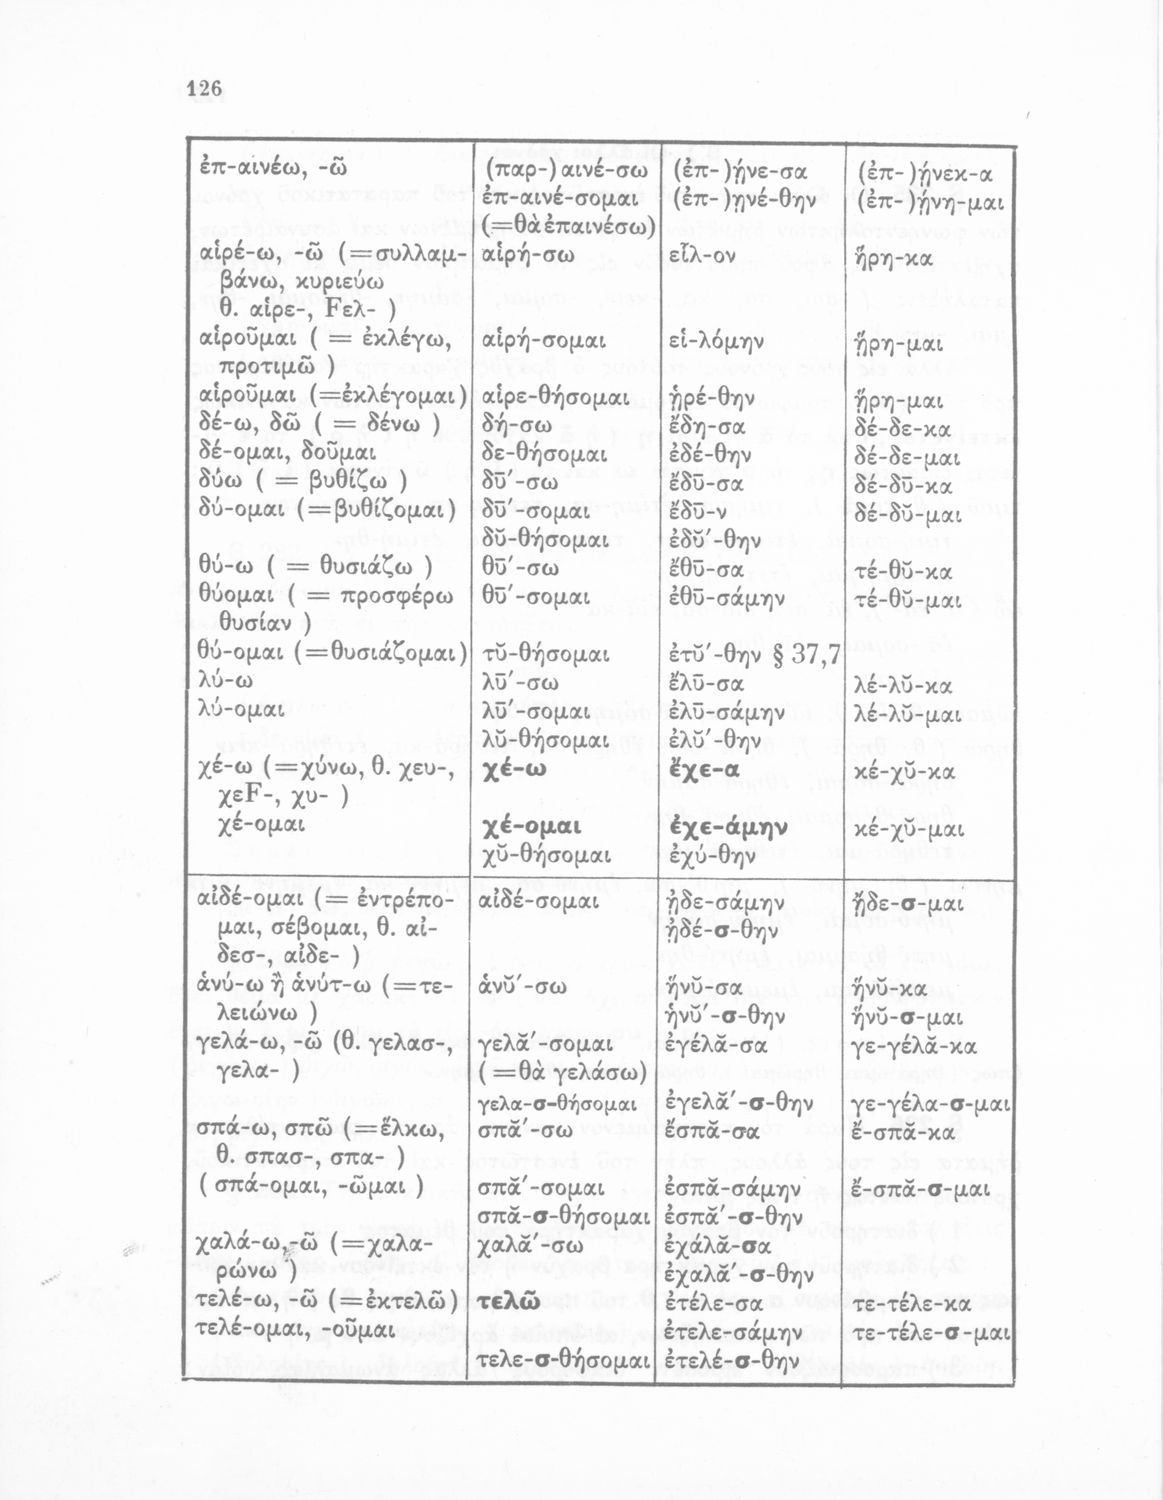 126
ἐπ-αἰνέω, -ῶ (παρ-) αινέ-σω (ἐπ- )ῄνε-σα (ἐπ- )ῄνεκ-α
ἐπ-αινέ-σομαι (ἐπ- )ῃνέ-θην (ἐπ- )ῄνη-μαι
(=θὰ ἐπαινέσω)
αἱρέ-ω, -ῶ (=συλλαμ- αἱρή-σω εἷλ-ον ᾕρη-κα
βάνω, κυριεύω
θ. αἱρε-, Fελ- )
αἱροῦμαι ( = ἐκλέγω, αἱρή-σομαι εἱ-λόμην ᾕρη-μαι
προτιμῶ )
αἱροῦμαι (=ἐκλέγομαι) αἱρε-θήσομαι ᾑρέ-θην ᾕρη-μαι
δέ-ω, δῶ ( = δένω ) δή-σω ἔδη-σα δέ-δε-κα
δέ-ομαι, δοῦμαι δε-θήσομαι ἐδέ-θην δέ-δε-μαι
δύω ( = βυθίζω ) δῡ́-σω ἔδῡ-σα δέ-δῠ-κα
δύ-ομαι (=βυθίζομαι) δῡ́-σομαι ἔδῡ-ν δέ-δῠ-μαι
δῠ-θήσομαι ἐδῠ́-θην
θύ-ω ( = θυσιάζω ) θῡ́-σω ἔθῡ-σα τέ-θῠ-κα
θύομαι ( = προσφέρω θῡ́-σομαι ἐθῡ-σάμην τέ-θῠ-μαι
θυσίαν )
θύ-ομαι (=θυσιάζομαι) τῠ-θήσομαι ἐτῠ́-θην § 37,7
λύ-ω λῡ́-σω ἔλῡ-σα λέ-λῠ-κα
λύ-ομαι λῡ́-σομαι ἐλῡ-σάμην λέ-λῠ-μαι
λῠ-θήσομαι ἐλῠ́-θην
χέ-ω (=χύνω, θ. χευ-, χέ-ω ἔχε-α κέ-χῠ-κα
χεF-, χυ- )
χέ-ομαι χέ-ομαι ἐχε-άμην κέ-χῠ-μαι
χῠ-θήσομαι ἐχύ-θην
αἰδέ-ομαι (= ἐντρέπο- αἰδέ-σομαι ᾐδε-σάμην ᾔδε-σ-μαι
μαι, σέβομαι, θ. αἰ- ᾐδέ-σ-θην
δεσ-, αἰδε- )
ἁνύ-ω ἢ ἁνύτ-ω (=τε- ἁνῠ́-σω ἥνῠ-σα ἥνῠ-κα
λειώνω ) ἡνῠ́-σ-θην ἥνῠ-σ-μαι
γελά-ω, -ῶ (θ. γελασ-, γελᾰ́-σομαι ἐγέλᾰ-σα γε-γέλᾰ-κα
γελα- ) (=θὰ γελάσω)
γελα-σ-θήσομαι ἐγελᾰ́-σ-θην γε-γέλα-σ-μαι
σπά-ω, σπῶ (=ἕλκω, σπᾰ́-σω ἔσπᾰ-σα ἔ-σπᾰ-κα
θ. σπασ-, σπα- )
( σπά-ομαι, -ῶμαι ) σπᾰ́-σομαι ἐσπᾰ-σάμην ἔ-σπᾰ-σ-μαι
σπᾰ-σ-θήσομαι ἐσπᾰ́-σ-θην
χαλά-ω, -ῶ (=χαλα- χαλᾰ́-σω ἐχάλᾰ-σα
ρώνω ) ἐχαλᾰ́-σ-θην
τελέ-ω, -ῶ (=ἐκτελῶ) τελῶ ἐτέλε-σα τε-τέλε-κα
τελέ-ομαι, -οῦμαι ἐτελε-σάμην τε-τέλε-σ-μαι
τελε-σ-θήσομαι ἐτελέ-σ-θην